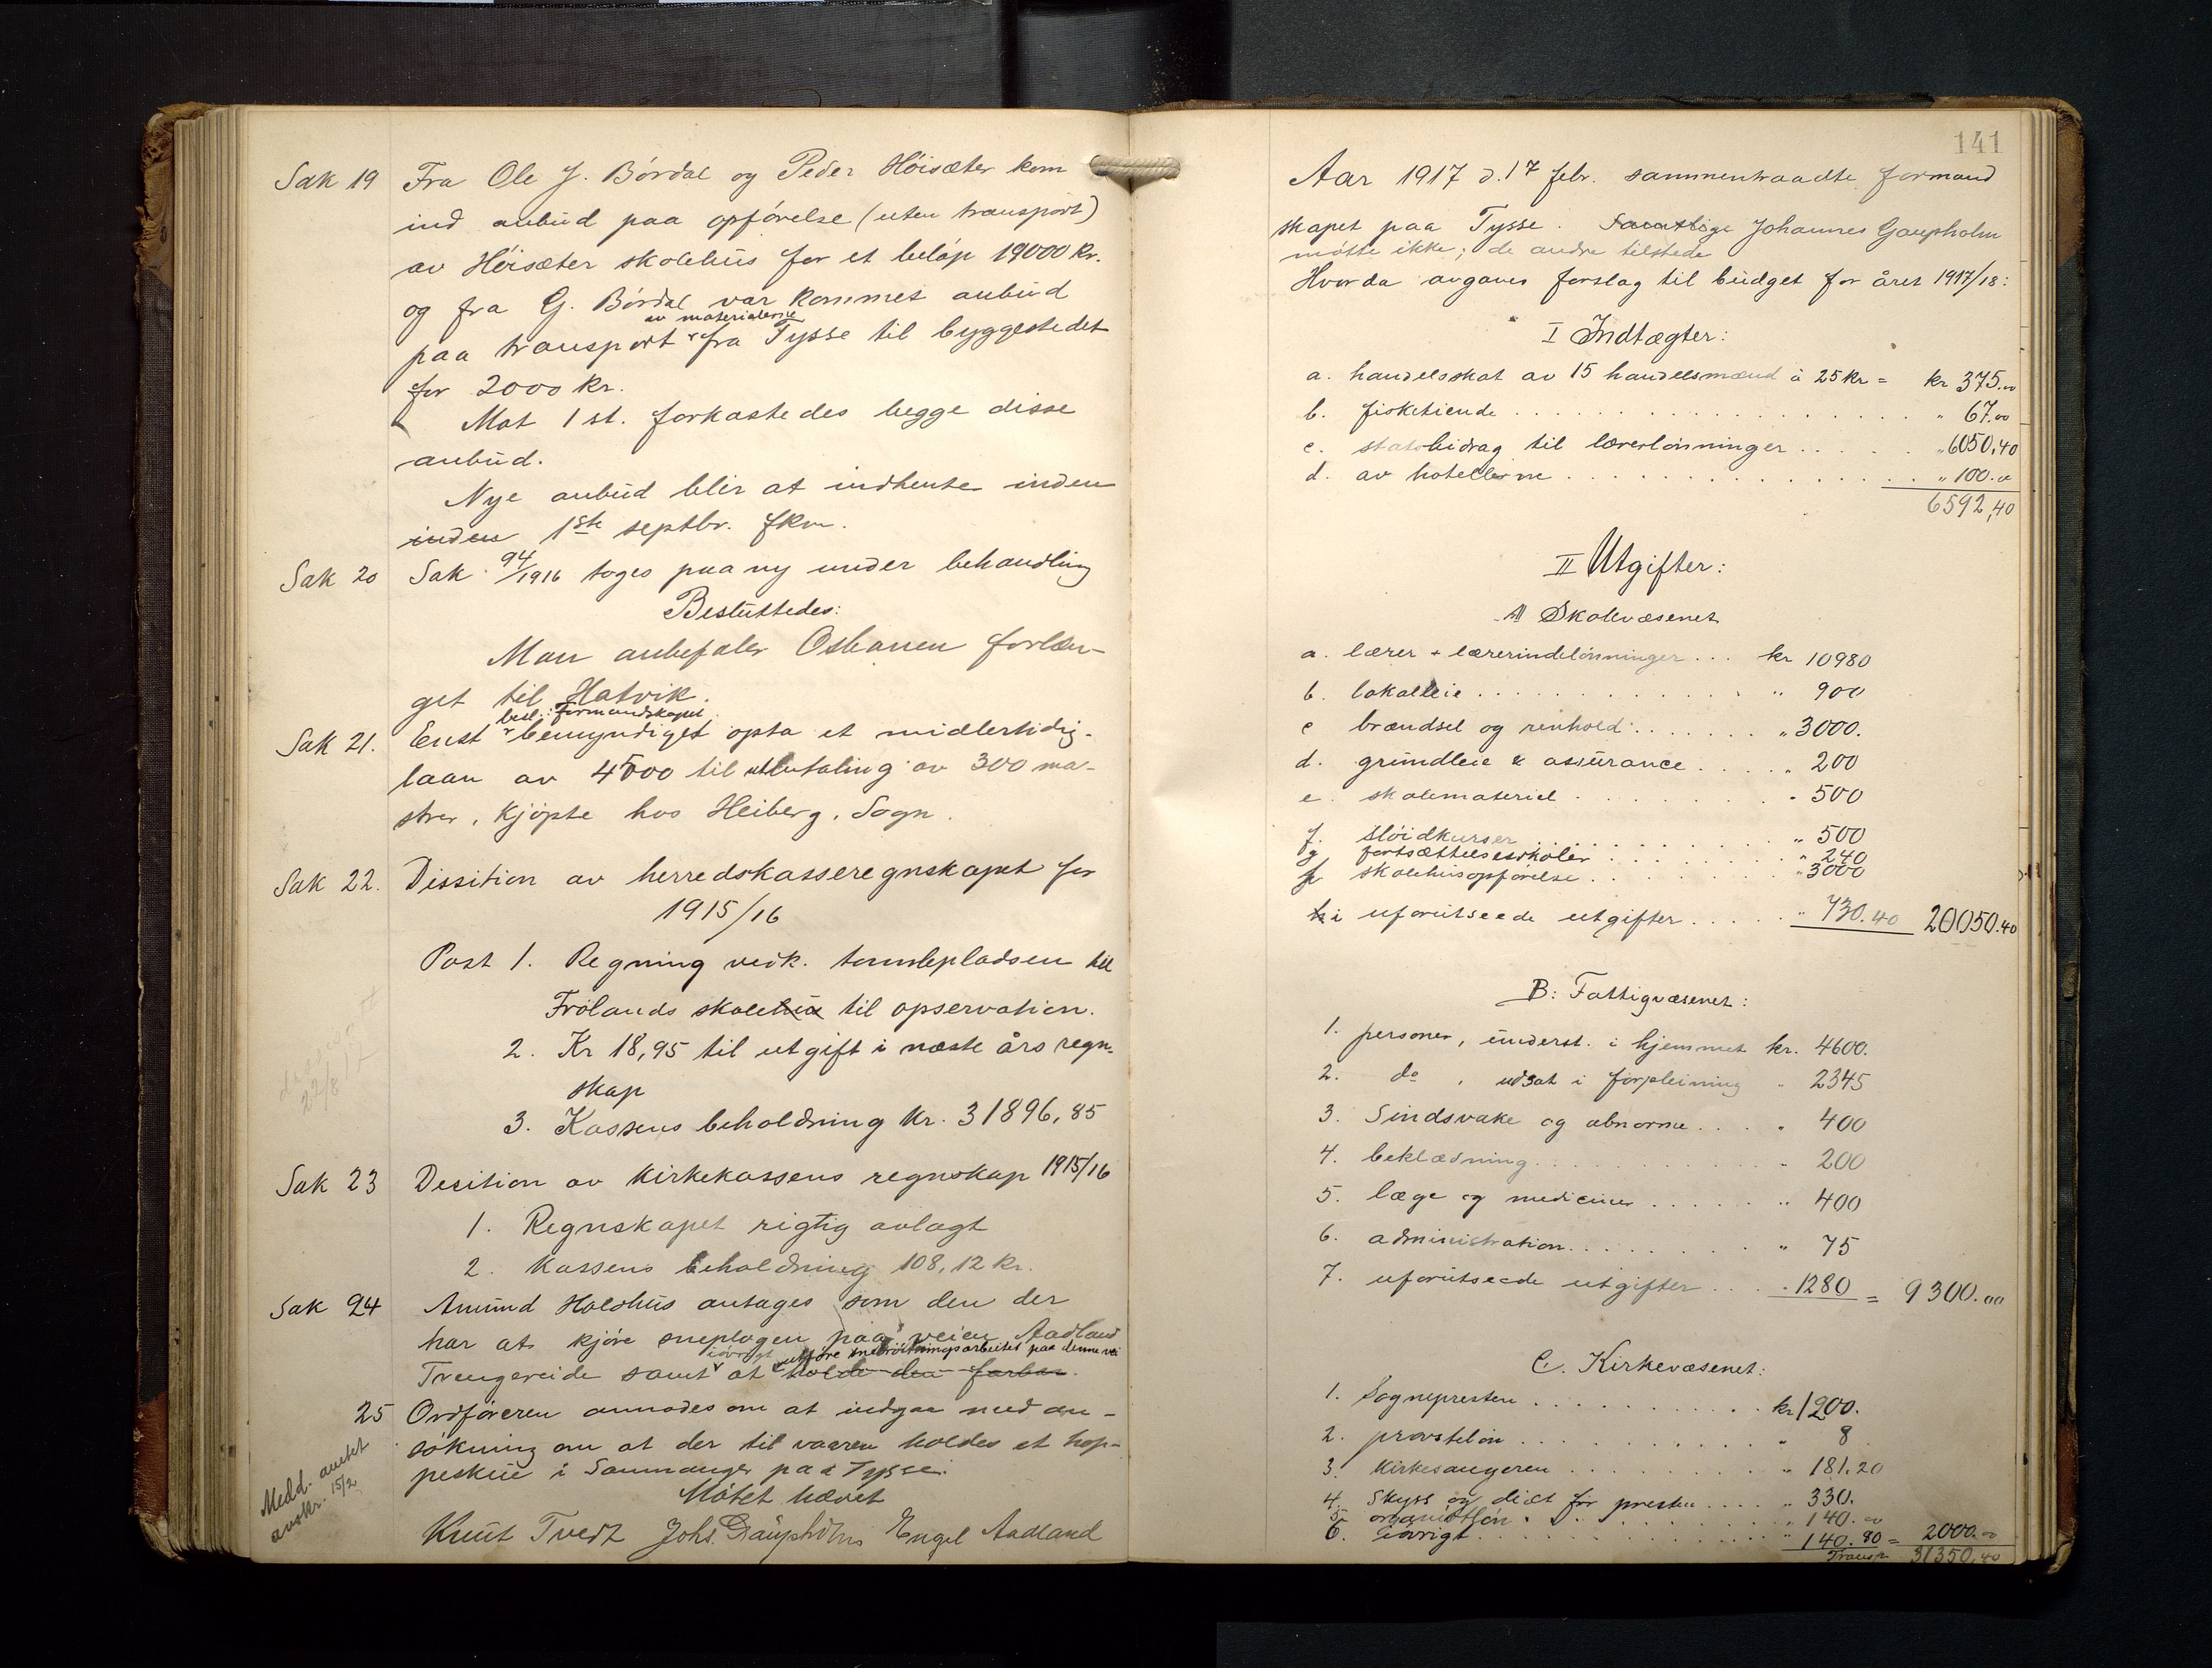 Sak 19 Fra Ole J. Børdal og Peder Høisæter kom
ind anbud paa opførelse (uten transport)
av Høisæter skolehus for et beløp 19000 kr.
og fra G. Børdal var kommet anbud
av materialerne
paa transport fra Tysse til byggestedet
for 2000 kr.
Mot 1 st. forkastedes begge disse
anbud.
Nye anbud blir at indhente inden
inden 1ste septbr. fkm.
Sak 20 Sak 94/1916 toges paa ny under behandling
Besluttedes:
Man anbefaler Osbanen forlæn-
get til Hatvik.
besl.: formandskapet
Sak 21. Enst bemyndiget opta et midlertidig
laan av 4500 til utbetaling av 300 ma-
strer, kjøpte hos Heiberg, Sogn.
Sak 22. Dissition av herredskasseregnskapet for
1915/16
Post 1. Regning vedk. tomtepladsen til
Frølands skolehus til opservation.
2. Kr 18,95 til utgift i næste års regn-
skap
3. Kassens beholdning kr. 31896,85
Sak 23 Decition av kirkekassens regnskap 1915/16
1. Regnskapet rigtig avlagt
2. Kassens beholdning 108,12 kr.
Sak 24 Amund Holdhus antages som den der
har at kjøre sneplogen paa veien Aadland
iøvrigt utføre snebrøitningsarbeidet paa denne vei
Trengereide samt at holde den farbar.
25 Ordføreren anmodes om at indgaa med an-
søkning om at der til vaaren holdes et hop-
peskue i Samnanger paa Tysse.
Møtet hævet
Medd. amtet
avskr. 15/2
Knut Tvedt Johs. Gaupholm Engel Aadland
141
Aar 1917 d. 17 febr. sammentraadte formand
skapet paa Tysse. Samtlige Johannes Gaupholm
møtte ikke; de andre tilstede
Hvorda avgaves forslag til budget for året 1917/18:
I Indtægter:
a. handelsskat av 15 handelsmænd à 25 kr = kr 375.00
b. fisketiende . . . " 67.00
c. statsbidrag til lærerlønninger . . . " 6050,40
d. av hotellerne . . . " 100.00
6592,40
II Utgifter:
A Skolevæsenet
a. lærer + lærerindelønninger . . . kr 10980
b. lokalleie . . . " 900
c brændsel og renhold . . . " 3000.
d. grundleie & assurance . . . " 200
e. skolemateriel . . . " 500
f. sløidkurser . . . " 500
g fortsættelsesskoler . . . " 240
h skolehusopførelse . . . " 3000
i uforutseede utgifter . . . " 730.40 20050.40
B: Fattigvæsenet:
1. personer, underst. i hjemmet kr. 4600.
2. do , udsat i forpleining " 2345
3. Sindsvake og abnorme . . . " 400
4. beklædning . . . 200
5. læge og mediciner . . . " 400
6. administration . . . " 75
7. uforutseede utgifter . . . 1280 = 9300.00
C. Kirkevæsenet:
1. Sognepresten . . . kr 1200.
2. provsteløn . . . " 8
3. kirkesangeren . . . " 181.20
4. Skyss og diæt for presten . . . " 330.
5. organistløn . . . " 140.00
6. iøvrigt . . . " 140.80 = 2000.00
Transp. 31350,40